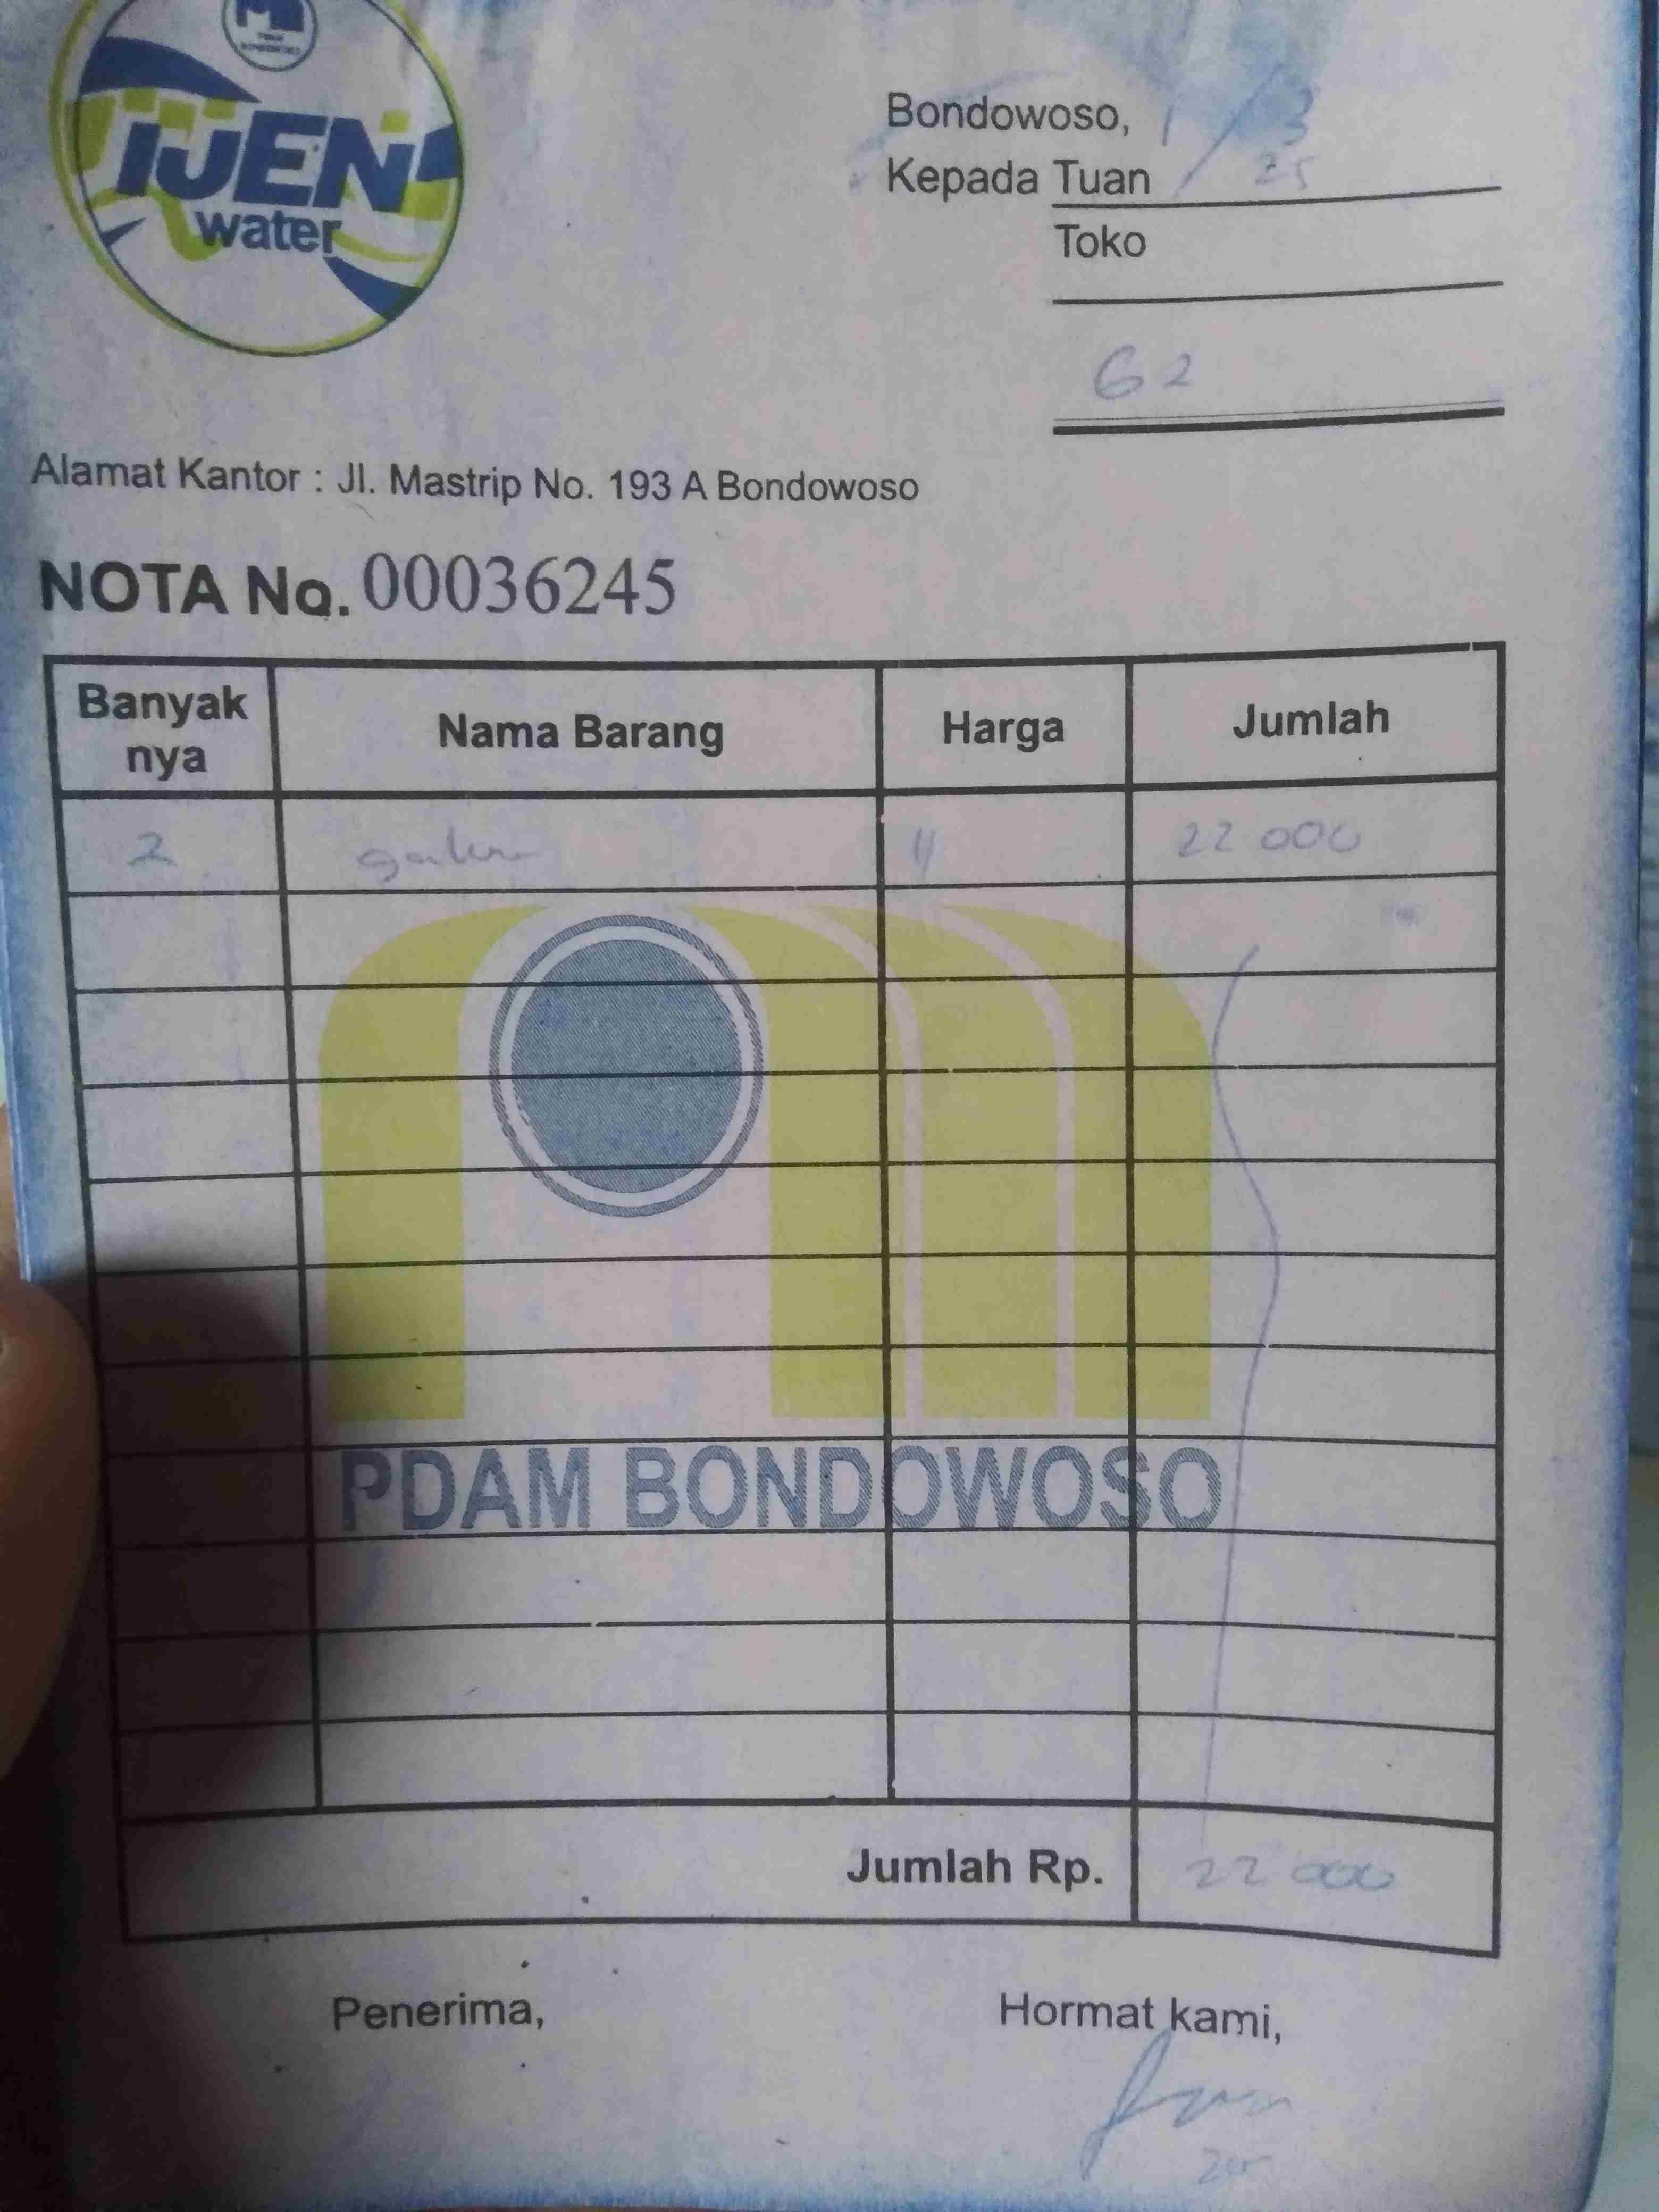 IJEN
water
Bondowoso, 1/3
Kepada Tuan 25
Toko
G2
Alamat Kantor : Jl. Mastrip No. 193 A Bondowoso
NOTA No. 00036245
Banyak nya Nama Barang Harga Jumlah
2 galon 11 22 000
PDAM BONDOWOSO
Jumlah Rp. 22 000
Penerima, Hormat kami,